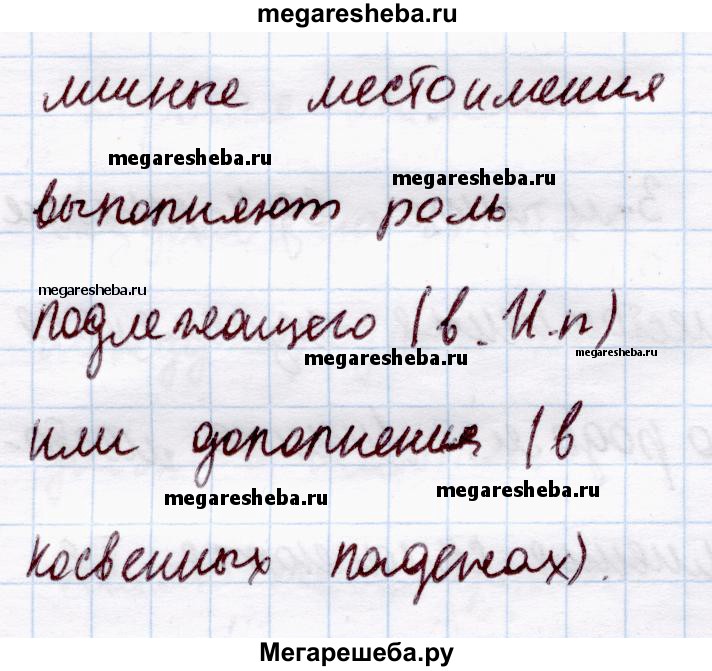 megaresheba.ru
личные местоимения
megaresheba.ru
megaresheba.ru
выполняют роль
megaresheba.ru
подлежащего (в И.п)
megaresheba.ru
megaresheba.ru
или дополнения (в
megaresheba.ru
megaresheba.ru
косвенных падежах).
Мегарешеба.ру